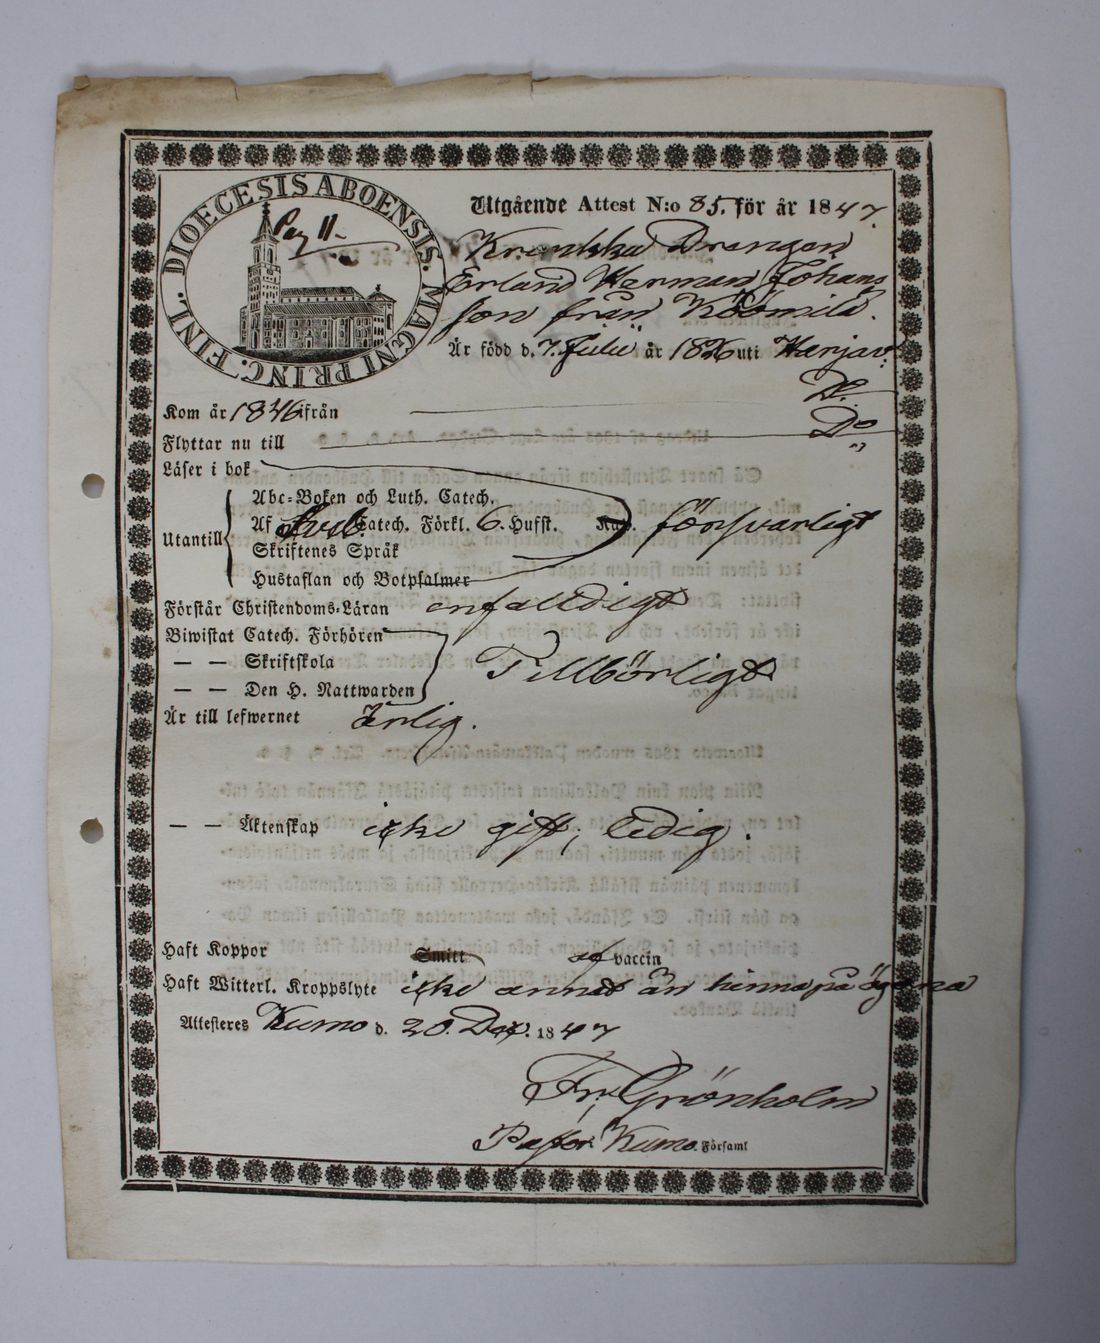 DIOECESIS ABOENSIS. MAGNI PRINC. FINL.
Pag 11.
Utgående Attest N:o 85. för år 1847.
Drengen
Erland Herman Johans
son från
Är född d. 7. Julii år 1826 uti Harjav.
Kom år 1846 ifrån Do
Flyttar nu till Do
Läser i bok
Abc-Boken och Luth. Catech.
Utantill Af Svib. Catech. Förkl. 6. Hufst. försvarligt
Skriftenes Språk
Hustaflan och Botpsalmer
Förstår Christendoms-Läran enfalldigt
Biwistat Catech. Förhören
— — Skriftskola Tillbörligt
— — Den H. Nattwarden
Är till lefwernet Ärlig.
— — Äktenskap icke gift, ledig.
Haft Koppor Smitt af vaccin
Haft Witterl. Kroppslyte icke annat än hinna på ögona
Attesteres Kumo d. 20. Dec. 1847
Fr. Grönholm
Pastor i Kumo Församl